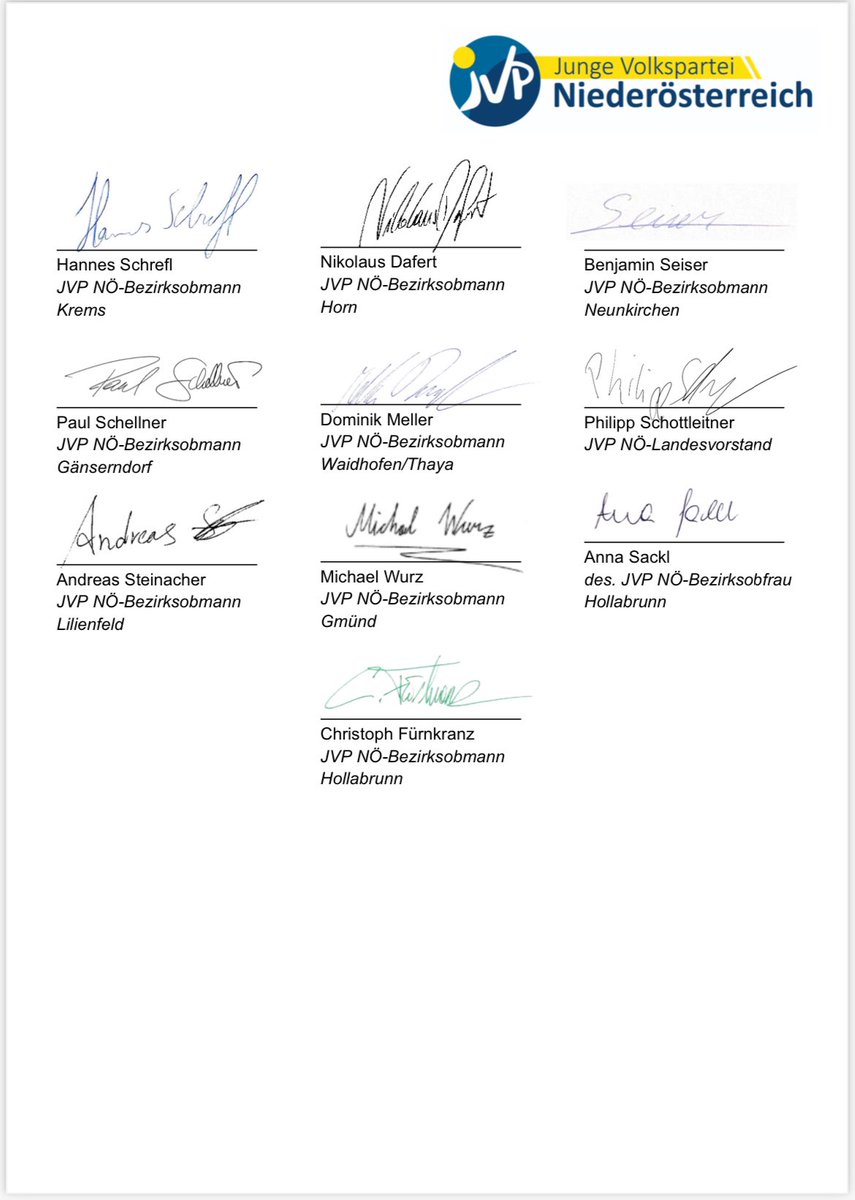 JVP
Junge Volkspartei
Niederösterreich
Hannes Schrefl
Hannes Schrefl
JVP NÖ-Bezirksobmann
Krems
Nikolaus Dafert
Nikolaus Dafert
JVP NÖ-Bezirksobmann
Horn
Seiser
Benjamin Seiser
JVP NÖ-Bezirksobmann
Neunkirchen
Paul Schellner
Paul Schellner
JVP NÖ-Bezirksobmann
Gänserndorf
Dominik Meller
JVP NÖ-Bezirksobmann
Waidhofen/Thaya
Philipp
Philipp Schottleitner
JVP NÖ-Landesvorstand
Andreas
Andreas Steinacher
JVP NÖ-Bezirksobmann
Lilienfeld
Michael Wurz
Michael Wurz
JVP NÖ-Bezirksobmann
Gmünd
Anna Sackl
Anna Sackl
des. JVP NÖ-Bezirksobfrau
Hollabrunn
C. Fürnkranz
Christoph Fürnkranz
JVP NÖ-Bezirksobmann
Hollabrunn